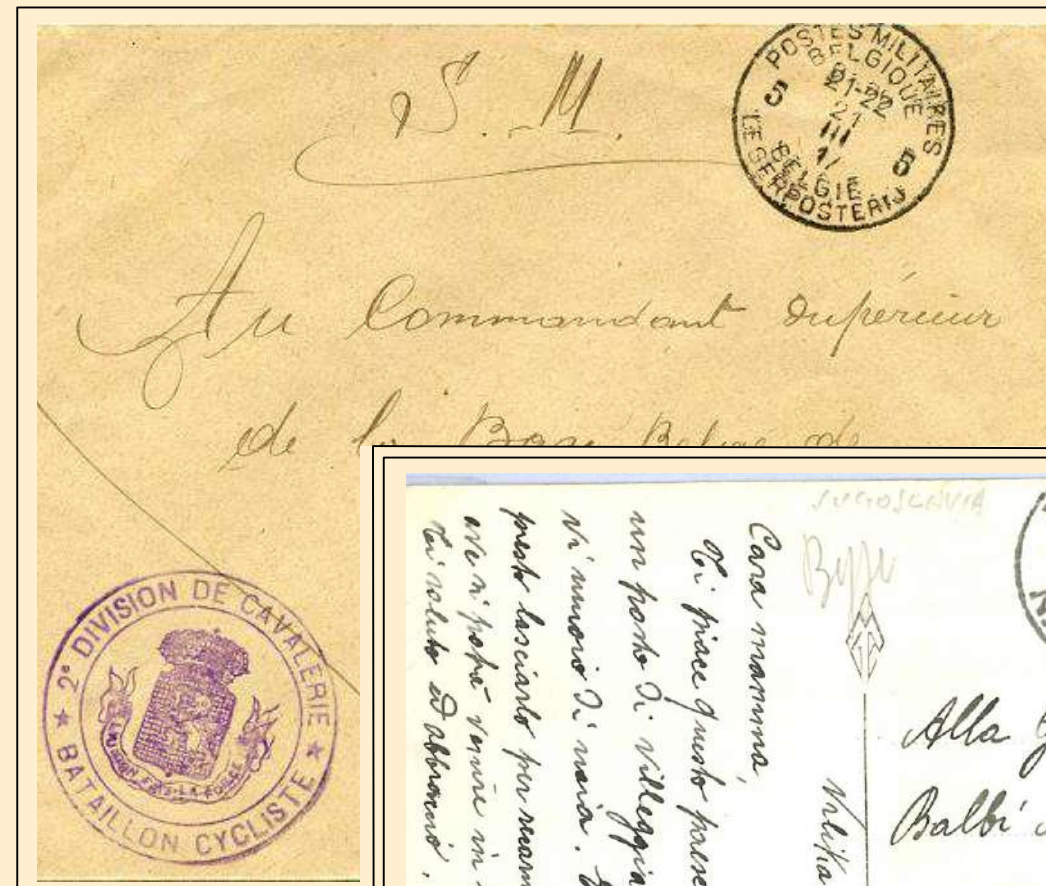 S. M.
POSTES MILITAIRES
BELGIQUE
21-22
21
III
17
BELGIË
LEGERPOSTERIJ
5 5
Au Commandant Supérieur
de la Base Belge de
2e DIVISION DE CAVALERIE
★ BATAILLON CYCLISTE ★
L'UNION FAIT LA FORCE
JUGOSLAVIA
Cara mamma,
Ti piace questo paese
un posto di villeggia
si muore di noia.
presto lasciarlo per
ove si potrà venire in
Ti saluto ed abbraccio.
Alla
Balbi
Velika